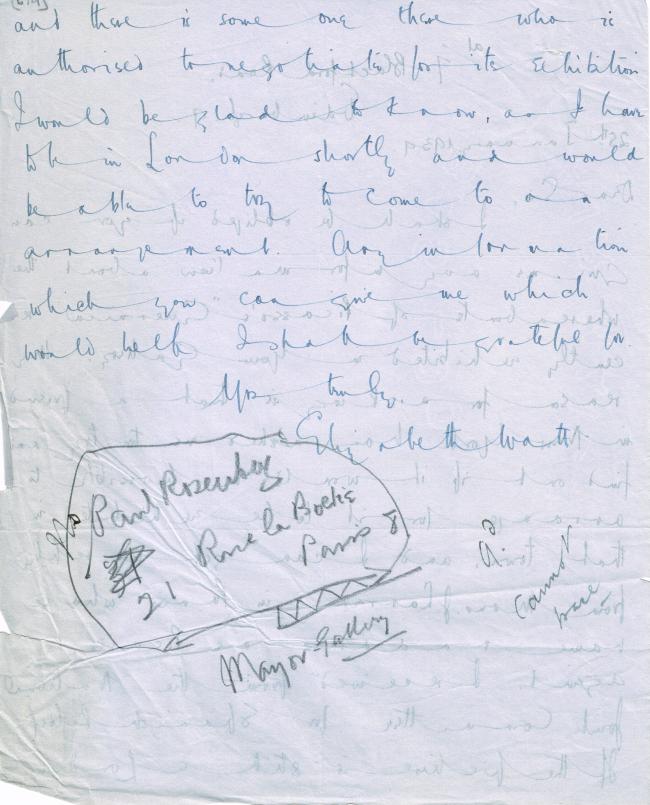 and there is some one there who is
authorised to negotiate for its exhibition
I would be glad to know, as I have
to be in London shortly and would
be able to try to come to a
arrangement. Any information
which you can give me which
would help I shall be grateful for.
Yrs truly,
Elizabeth Watt
Paul Rosenberg
21 Rue la Boetie
Paris 8
Mayor Gallery
Cannot